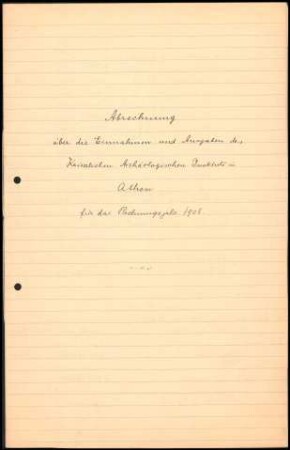 Abrechnung
über die Einnahmen und Ausgaben des
Kaiserlichen Archäologischen Instituts in
Athen
für das Rechnungsjahr 1908